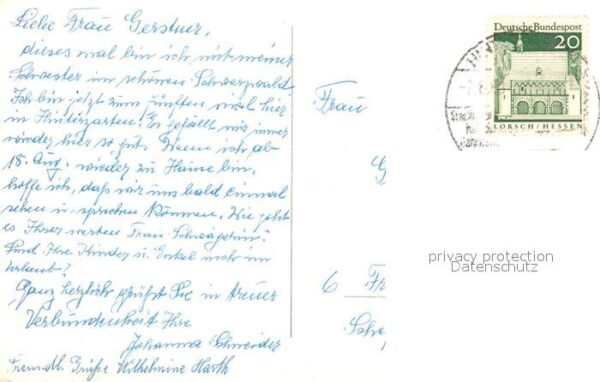 Liebe Frau Gerstner,
dieses mal bin ich mit meiner
Schwester im schönen Schwarzwald
Ich bin jetzt zum fünften mal hier
in Hinterzarten! Es gefällt mir immer
wieder hier so gut. Wenn ich ab
18. Aug. wieder zu Hause bin,
hoffe ich, daß wir uns bald einmal
sehen u. sprechen können. Wie geht
es Ihrer werten Frau Schwägerin?
Sind Ihre Kinder u. Enkel noch im
Urlaub?
Ganz herzlich grüßt Sie in treuer
Verbundenheit Ihre
Johanna Schneider
Freundl. Grüße Wilhelmine Harth
Deutsche Bundespost
20
LORSCH/HESSEN
Frau
G
6 Fr
Sch
privacy protection
Datenschutz